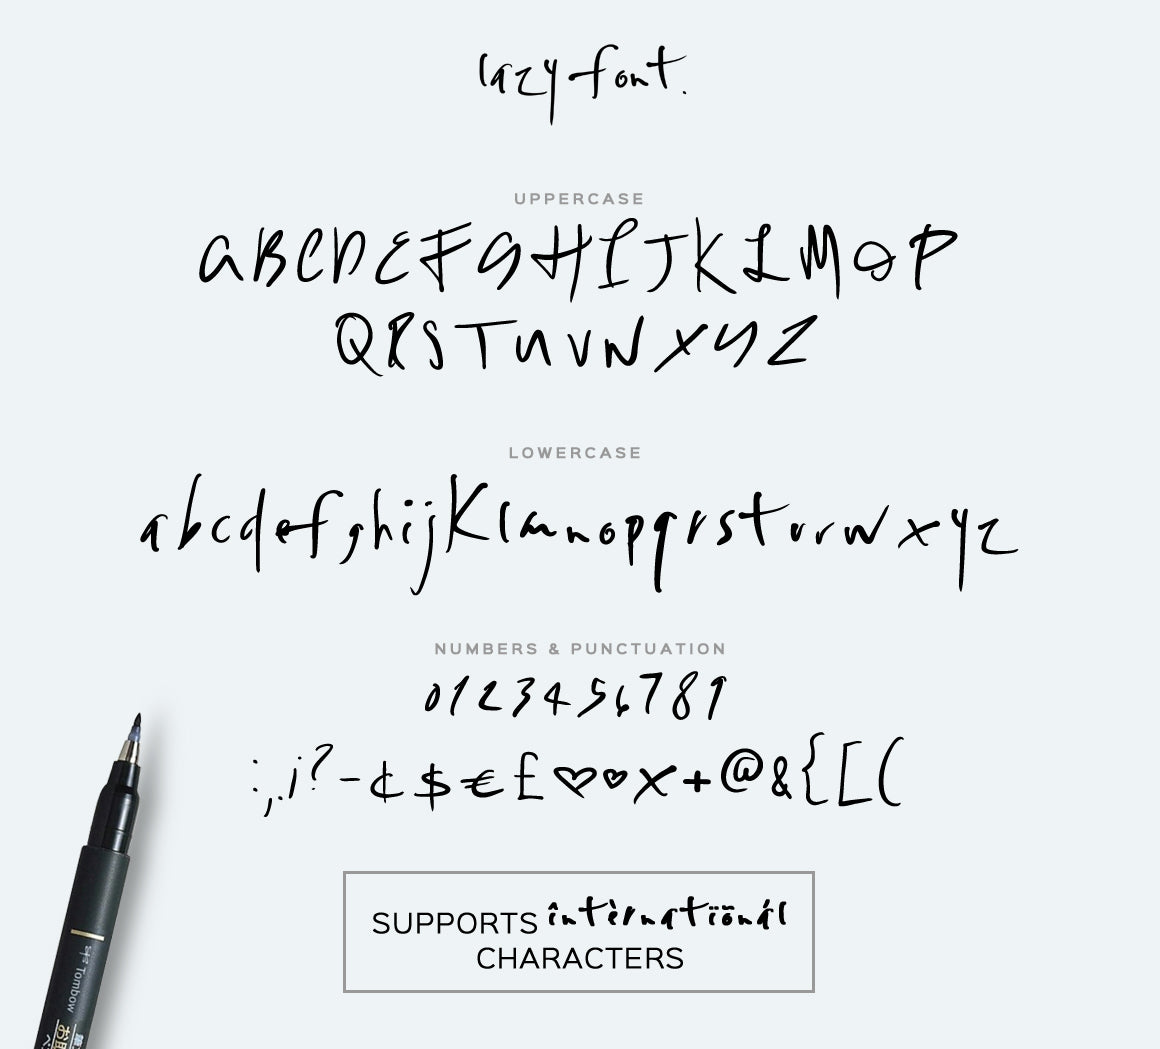 lazy font.
UPPERCASE
ABCDEFGHIJKLMOP
QRSTUVWXYZ
LOWERCASE
abcdefghijklmnopqrstuvwxyz
NUMBERS & PUNCTUATION
0123456789
:,.¡?-¢$€£♡♡x+@&{[(
SUPPORTS întèrnatïönál
CHARACTERS
Tombow